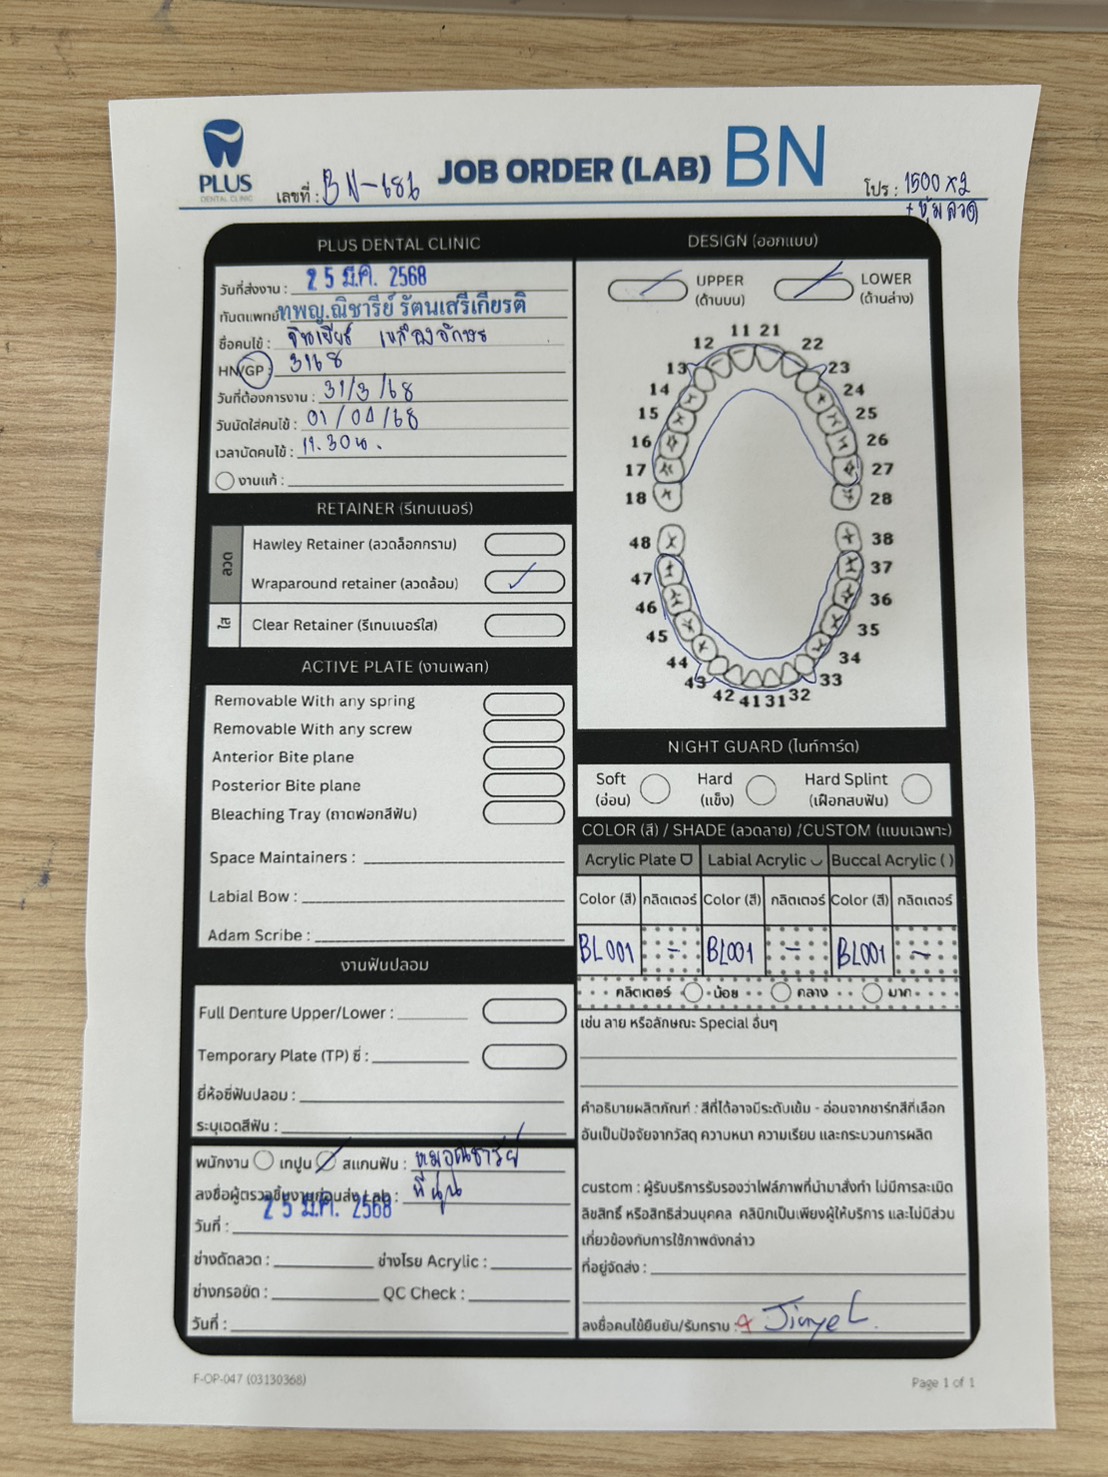 PLUS
DENTAL CLINIC
เลขที่ : BN-686
JOB ORDER (LAB) BN
โปร : 1500 x2
+ หุ้มลวด
PLUS DENTAL CLINIC
วันที่ส่งงาน : 25 มี.ค. 2568
ทันตแพทย์ ทพญ.ณิชารีย์ รัตนเสรีเกียรติ
ชื่อคนไข้ :
HN/GP : 3168
วันที่ต้องการงาน : 31/3/68
วันนัดใส่คนไข้ : 01/04/68
เวลานัดคนไข้ : 11.30น.
งานแก้ :
RETAINER (รีเทนเนอร์)
ลวด
Hawley Retainer (ลวดล็อกกราม)
Wraparound retainer (ลวดล้อม)
ใส
Clear Retainer (รีเทนเนอร์ใส)
ACTIVE PLATE (งานเพลท)
Removable With any spring
Removable With any screw
Anterior Bite plane
Posterior Bite plane
Bleaching Tray (ถาดฟอกสีฟัน)
Space Maintainers :
Labial Bow :
Adam Scribe :
งานฟันปลอม
Full Denture Upper/Lower :
Temporary Plate (TP) ซี่ :
ยี่ห้อซี่ฟันปลอม :
ระบุเฉดสีฟัน :
พนักงาน เทปูน สแกนฟัน : หมอณิชารีย์
ลงชื่อผู้ตรวจชิ้นงานก่อนส่ง Lab : พี่นุ่น
25 มี.ค. 2568
วันที่ :
ช่างดัดลวด : ช่างโรย Acrylic :
ช่างกรอขัด : QC Check :
วันที่ :
DESIGN (ออกแบบ)
UPPER (ด้านบน)
LOWER (ด้านล่าง)
11 21
12 22
13 23
14 24
15 25
16 26
17 27
18 28
48 38
47 37
46 36
45 35
44 34
43 33
42 41 31 32
NIGHT GUARD (ไนท์การ์ด)
Soft (อ่อน)
Hard (แข็ง)
Hard Splint (เฝือกสบฟัน)
COLOR (สี) / SHADE (ลวดลาย) /CUSTOM (แบบเฉพาะ)
Acrylic Plate Labial Acrylic Buccal Acrylic ( )
Color (สี) กลิตเตอร์ Color (สี) กลิตเตอร์ Color (สี) กลิตเตอร์
BL001 - BL001 - BL001 -
กลิตเตอร์ น้อย กลาง มาก
เช่น ลาย หรือลักษณะ Special อื่นๆ
คำอธิบายผลิตภัณฑ์ : สีที่ได้อาจมีระดับเข้ม - อ่อนจากชาร์ทสีที่เลือก
อันเป็นปัจจัยจากวัสดุ ความหนา ความเรียบ และกระบวนการผลิต
custom : ผู้รับบริการรับรองว่าไฟล์ภาพที่นำมาสั่งทำ ไม่มีการละเมิด
ลิขสิทธิ์ หรือสิทธิส่วนบุคคล คลินิกเป็นเพียงผู้ให้บริการ และไม่มีส่วน
เกี่ยวข้องกับการใช้ภาพดังกล่าว
ที่อยู่จัดส่ง :
ลงชื่อคนไข้ยืนยัน/รับทราบ : Jinye L.
F-OP-047 (03130368)
Page 1 of 1